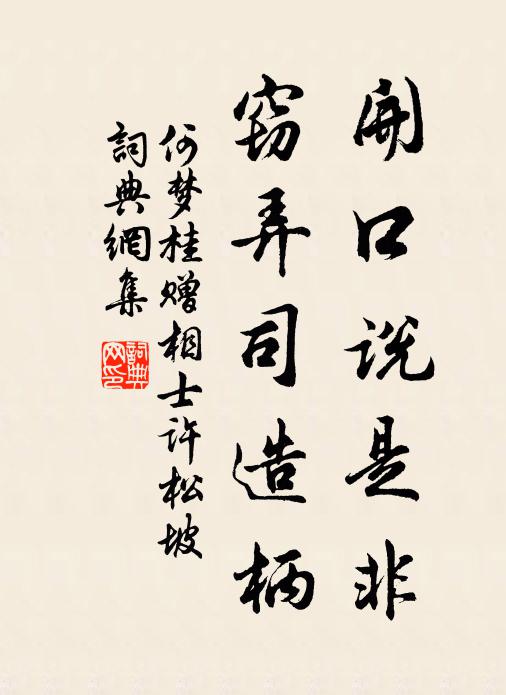 開口説是非
窃弄司造柄
何梦桂赠相士许松坡
詞典網集
詞典网印